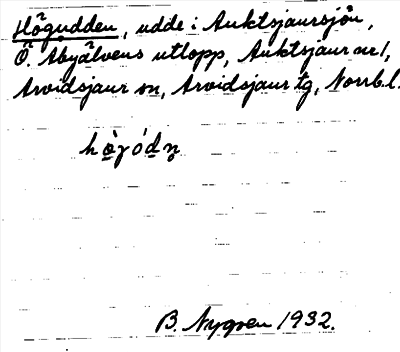 Högudden, udde i Auktsjaursjön,
Ö. Abyälvens utlopp, Auktsjaur nr 1,
Arvidsjaur sn, Arvidsjaur tg, Norrb.l.
B. Nygren 1932.